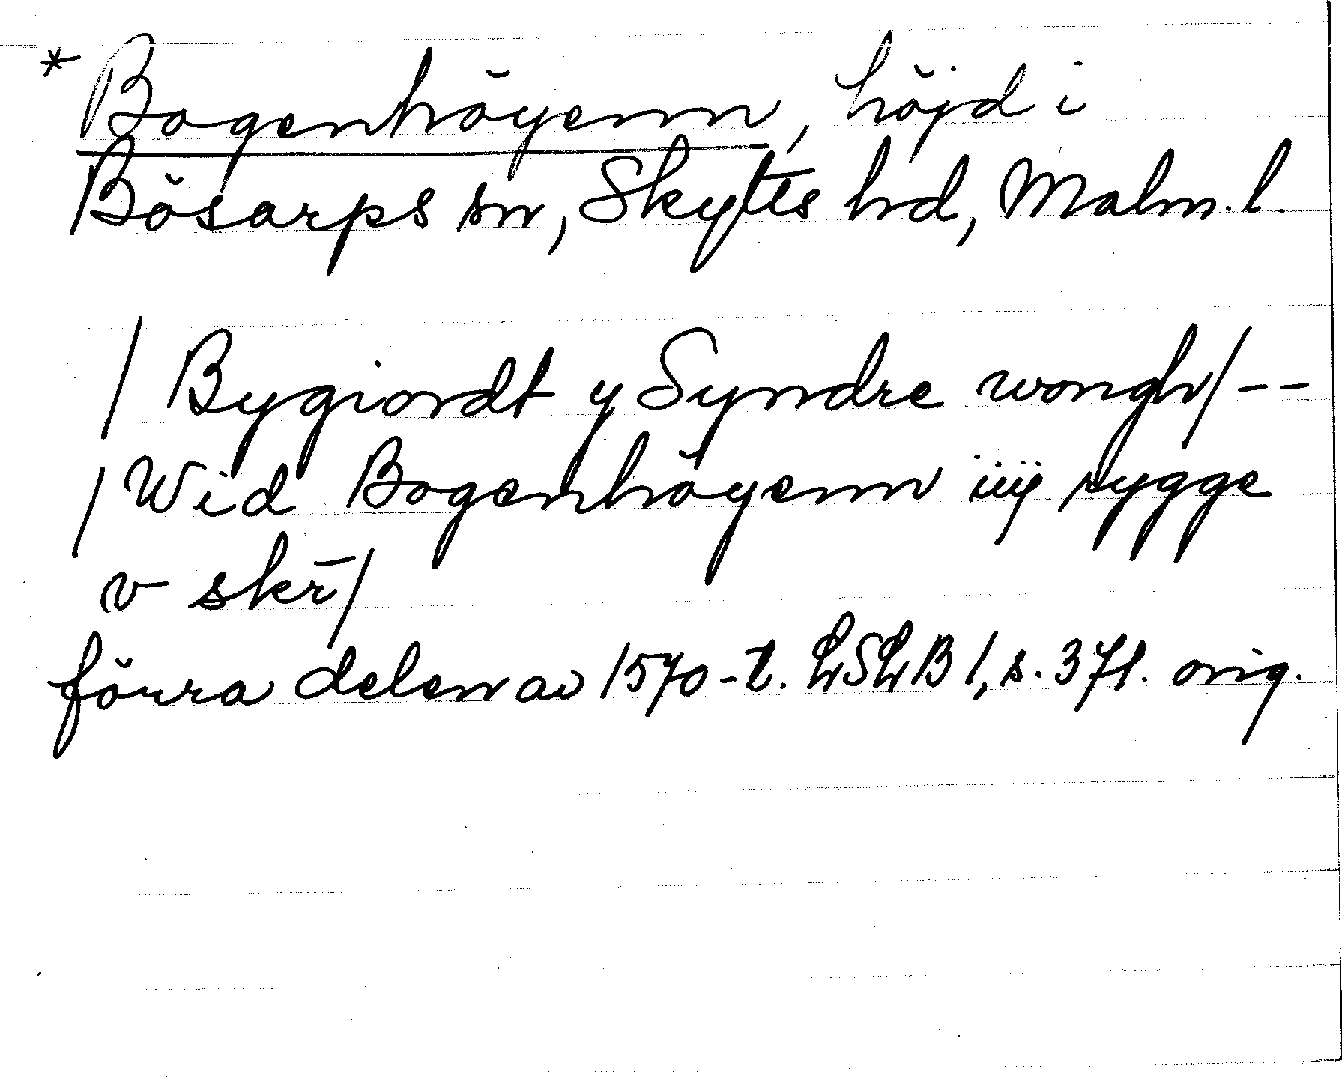 * Bogenhöyenn, höjd i
Bösarps sn, Skytts hd, Malm. l.
/ Bygiordt y Syndre wongh/ --
/ Wid Bogenhöyenn iiij rygge
v skr̄/
förra delen av 1570-t. LSLB 1, s. 371. orig.